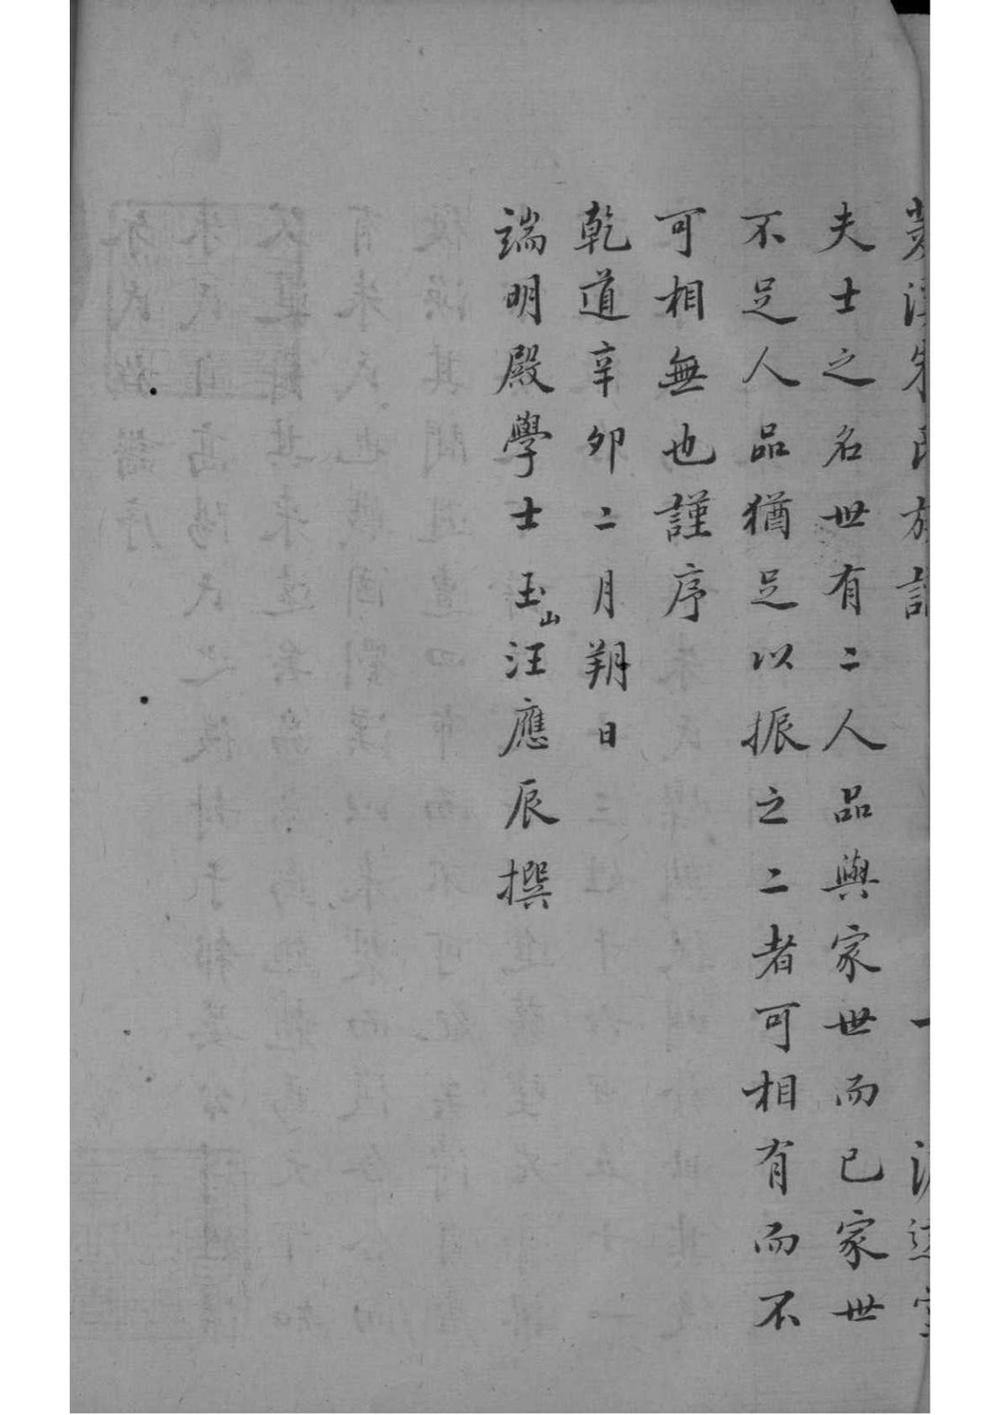 朱氏族譜 一
夫士之名世有二人品與家世而已家世
不足人品猶足以振之二者可相有而不
可相無也謹序
乾道辛卯二月朔日
端明殿學士玉山汪應辰撰